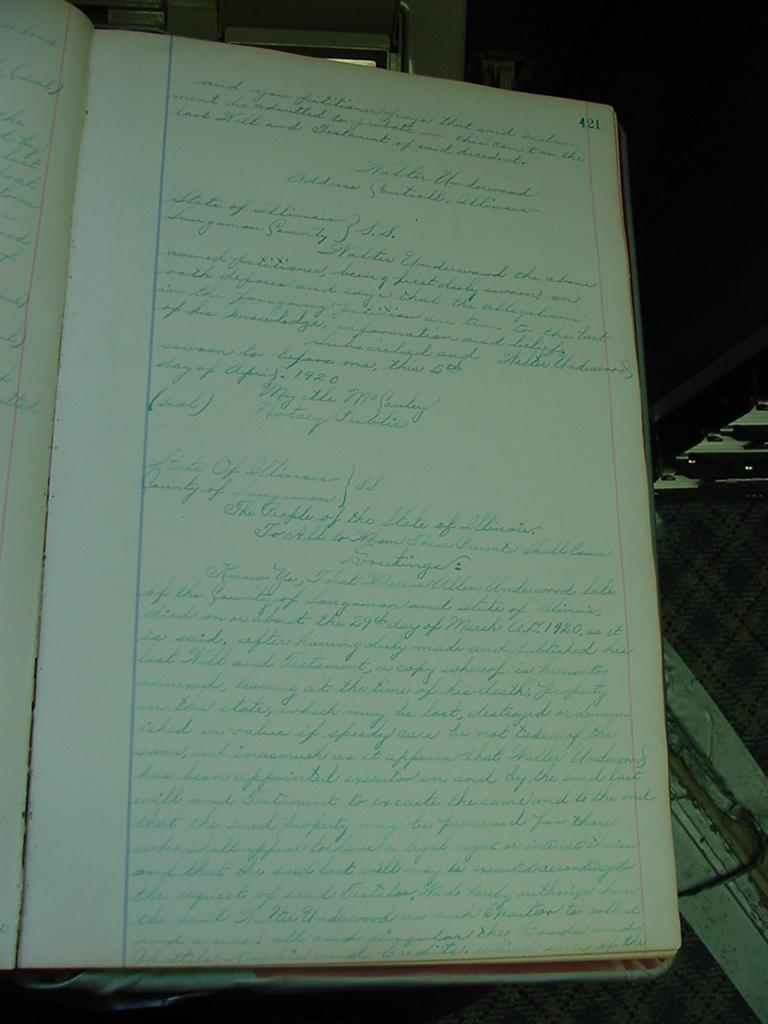 421
and your petitioner prays that said Instru-
ment be admitted to probate in this court as the
last Will and Testament of said decedent.
Walter Underwood
Address Cantrall, Illinois
State of Illinois } S.S.
Sangamon County
Walter Underwood the above
named petitioner, being first duly sworn, on
oath deposes and says that the allegations
in the foregoing petition are true to the best
of his knowledge, information and belief.
Subscribed and Walter Underwood
sworn to before me, this 5th
day of April. 1920
Myrtle McCauley
(seal) Notary Public
State Of Illinois } SS.
County of Sangamon
The People of the State of Illinois.
To All to Whom These Presents Shall Come
Greetings:
Know Ye, That Whereas Allen Underwood late
of the County of Sangamon and State of Illinois,
died on or about the 29th day of March A.D. 1920, as it
is said, after having duly made and published his
last Will and Testament, a copy whereof is hereunto
annexed, leaving at the time of his death, property
in this state, which may be lost, destroyed or dimin-
ished in value if speedy care be not taken of the
same, and inasmuch as it appears that Walter Underwood
has been appointed executor in and by the said last
will and Testament to execute the same and to the end
that the said property may be preserved for those
who shall appear to have a legal right or interest therein
and that the said last will may be executed according to
the request of said Testator, We do hereby authorize him
the said Walter Underwood as such Executor to collect
and secure all and singular the Goods and
Chattels, Rights and Credits. of the